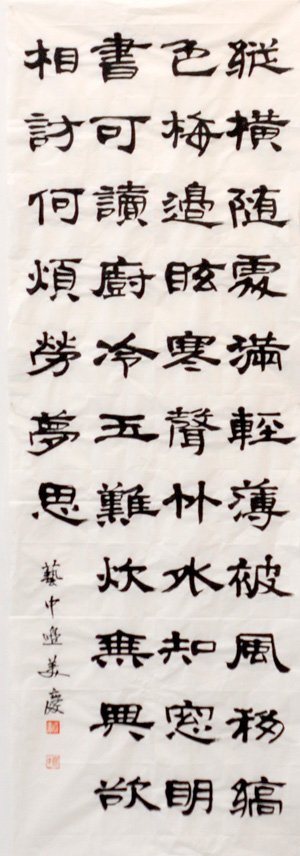 縱橫随處滿輕薄被風移縞
色梅邊眩寒聲竹外知窓明
書可讀廚冷玉難炊無興欲
相訪何煩勞夢思
藝中美慶